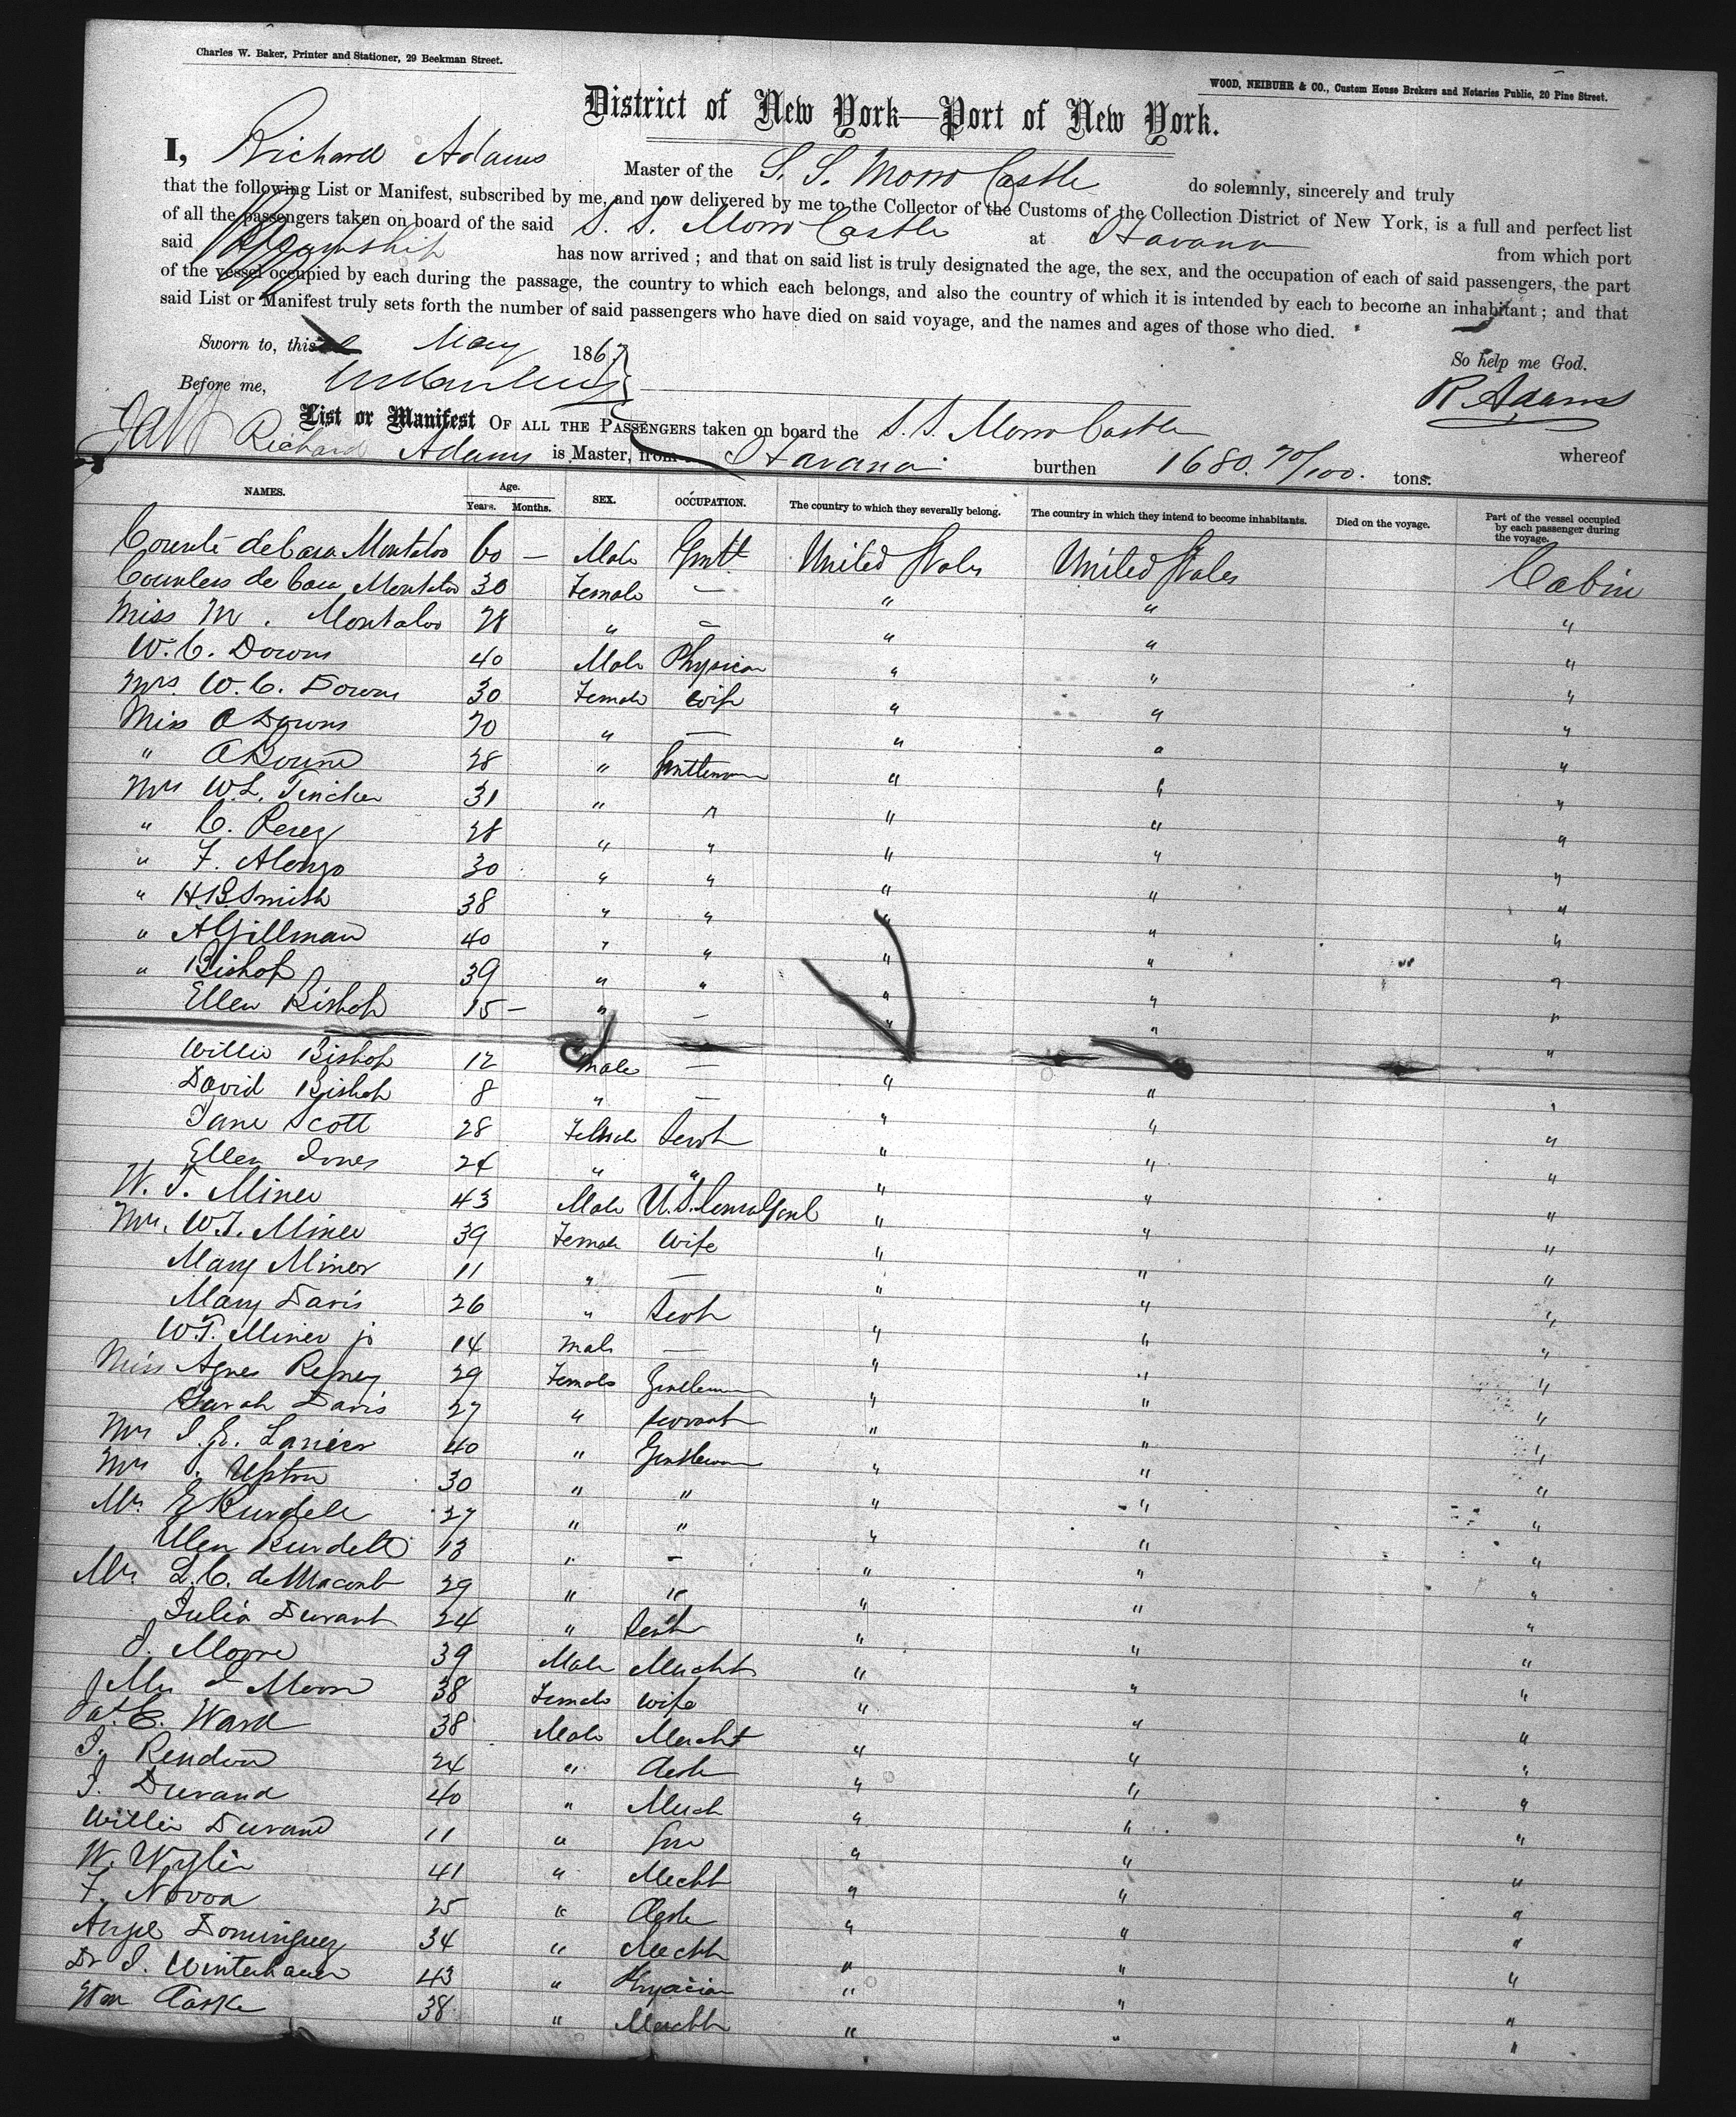 Charles W. Baker, Printer and Stationer, 29 Beekman Street.
WOOD, NEIBUHR & CO., Custom House Brokers and Notaries Public, 20 Pine Street.
District of New York—Port of New York.
I, Richard Adams Master of the S. S. Morro Castle do solemnly, sincerely and truly
that the following List or Manifest, subscribed by me, and now delivered by me to the Collector of the Customs of the Collection District of New York, is a full and perfect list
of all the passengers taken on board of the said S. S. Morro Castle at Havana from which port
said Steamship has now arrived ; and that on said list is truly designated the age, the sex, and the occupation of each of said passengers, the part
of the vessel occupied by each during the passage, the country to which each belongs, and also the country of which it is intended by each to become an inhabitant ; and that
said List or Manifest truly sets forth the number of said passengers who have died on said voyage, and the names and ages of those who died.
Sworn to, this May 1867
So help me God.
Before me,
R Adams
List or Manifest OF ALL THE PASSENGERS taken on board the S. S. Morro Castle whereof
Richard Adams is Master, from Havana burthen 1680. 70/100. tons.
NAMES. Age. Years. Months. SEX. OCCUPATION. The country to which they severally belong. The country in which they intend to become inhabitants. Died on the voyage. Part of the vessel occupied by each passenger during the voyage.
de Casa Montalvo 60 — Male Gentt United States United States Cabin
de Casa Montalvo 30 Female — " " "
Miss M. Montalvo 28 " — " " "
W. C. Downs 40 Male Physician " " "
Mrs. W. C. Downs 30 Female Wife " " "
Miss A Downs 20 " — " " "
" A Bourne 28 " Gentleman " " "
Mrs W. L. Tincker 31 " " " " "
" C. Perez 28 " " " " "
" F. Alonzo 30 " " " " "
" H. B. Smith 38 " " " " "
" A Gillman 40 " " " " "
" Bishop 39 " " " " "
Ellen Bishop 15 — " — " " "
Willie Bishop 12 Male — " " "
David Bishop 8 " — " " "
Jane Scott 28 Female Servt " " "
Ellen Jones 24 " " " " "
W. T. Miner 43 Male U. S. Consul Genl " " "
Mrs. W. T. Miner 39 Female Wife " " "
Mary Miner 11 " — " " "
Mary Davis 26 " Servt " " "
W. T. Miner jr 14 Male — " " "
Miss Agnes 29 Female Gentleman " " "
Sarah Davis 27 " Servant " " "
Mrs J. E. Lanier 40 " Gentleman " " "
Mrs Upton 30 " " " " "
Mrs. E Burdell 37 " " " " "
Ellen Burdell 13 " — " " "
Mrs. L. C. de Macomb 29 " " " " "
Julia Durant 24 " Servt " " "
J. Moore 39 Male Mercht " " "
Mrs J Moore 38 Female Wife " " "
C. Ward 38 Male Mercht " " "
J. Rendon 24 " Clerk " " "
J. Durand 40 " Merch " " "
Willie Durand 11 " Son " " "
W. Wylie 41 " Mercht " " "
F. Novoa 25 " Clerk " " "
Angel Dominguez 34 " Mercht " " "
Dr J. 43 " Physician " " "
Wm 38 " Mercht " " "